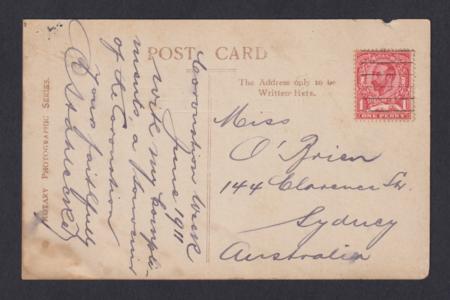 POST CARD
The Address only to be
Written Here.
ROTARY PHOTOGRAPHIC SERIES.
Coronation Week
June 1911
With my Compli-
ments a Souvenir
of the Coronation
Yours faithfully
1 1
ONE PENNY
Miss
O'Brien
144 Clarence St.
Sydney
Australia